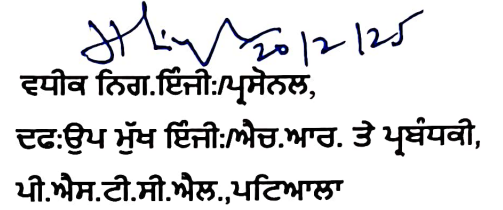 20/2/25
ਵਧੀਕ ਨਿਗ.ਇੰਜੀ:/ਪ੍ਰਸੋਨਲ,
ਦਫ:ਉਪ ਮੁੱਖ ਇੰਜੀ:/ਐਚ.ਆਰ. ਤੇ ਪ੍ਰਬੰਧਕੀ,
ਪੀ.ਐਸ.ਟੀ.ਸੀ.ਐਲ.,ਪਟਿਆਲਾ